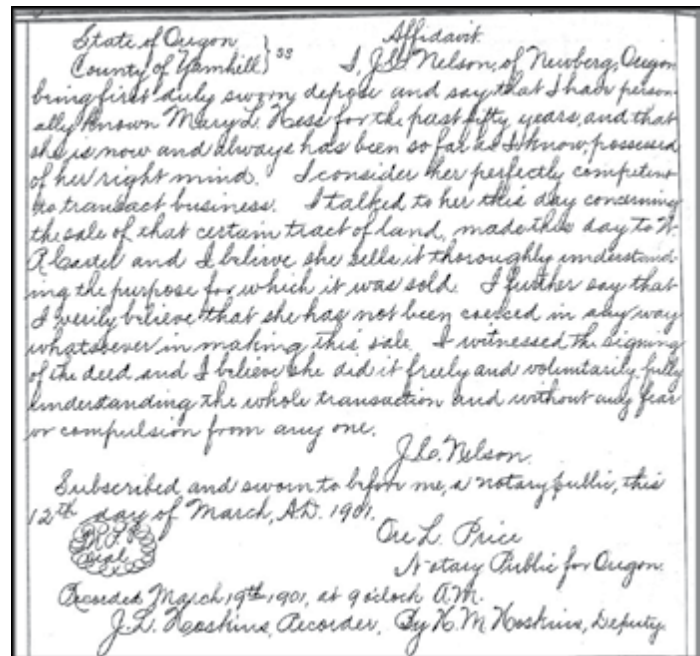 State of Oregon } ss Affidavit
County of Yamhill} I, J.C. Nelson, of Newberg, Oregon
being first duly sworn depose and say that I have person-
ally known Mary L. Hess for the past fifty years, and that
she is now and always has been so far as I know, possessed
of her right mind. I consider her perfectly competent
to transact business. I talked to her this day concerning
the sale of that certain tract of land, made this day to W.
A. and I believe she sells it thoroughly understand-
ing the purpose for which it was sold. I further say that
I verily believe that she has not been coerced in any way
whatsoever in making this sale. I witnessed the signing
of the deed and I believe she did it freely and voluntarily fully
understanding the whole transaction and without any fear
or compulsion from any one.
J.C. Nelson.
Subscribed and sworn to before me, a notary public, this
12th day of March, A.D. 1901.
L. Price
Seal
Notary Public for Oregon.
Recorded March, 19th 1901, at 9 o'clock A.M.
J.L. Hoskins, Recorder, By H.M Hoskins, Deputy.